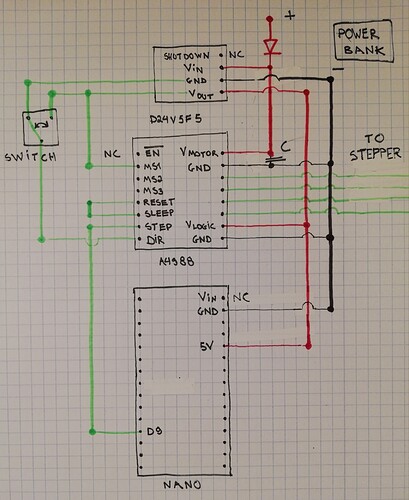 +
POWER
BANK
SHUTDOWN NC
VIN
GND
-
VOUT
D24V5F5
SWITCH
TO
STEPPER
NC
EN VMOTOR
C
MS1 GND
MS2
MS3
RESET
SLEEP
STEP VLOGIC
DIR GND
A4988
VIN NC
GND
5V
D8
NANO